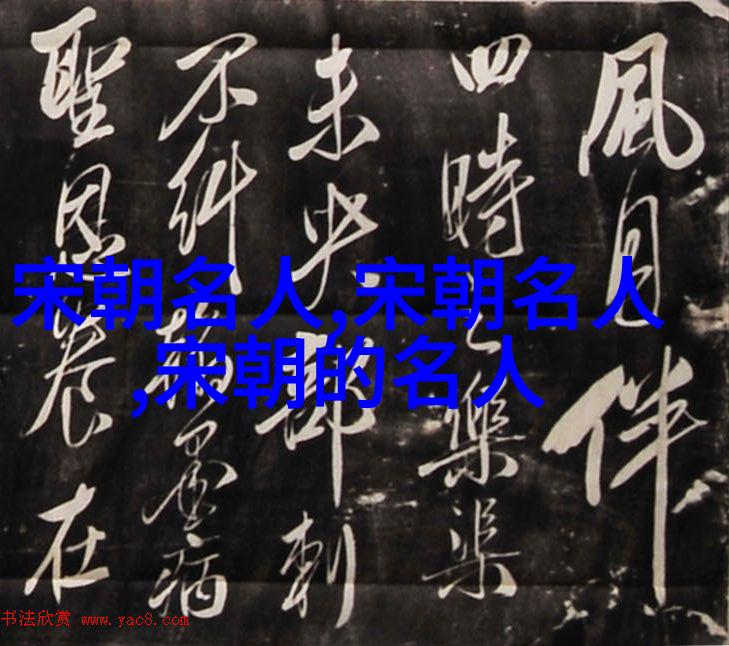 風月伴
四時之樂渠
未央都刺
不糾墨病
聖恩養在
宋朝名人,宋朝名人
,宋朝的名人
书法欣赏 www.yac8.com